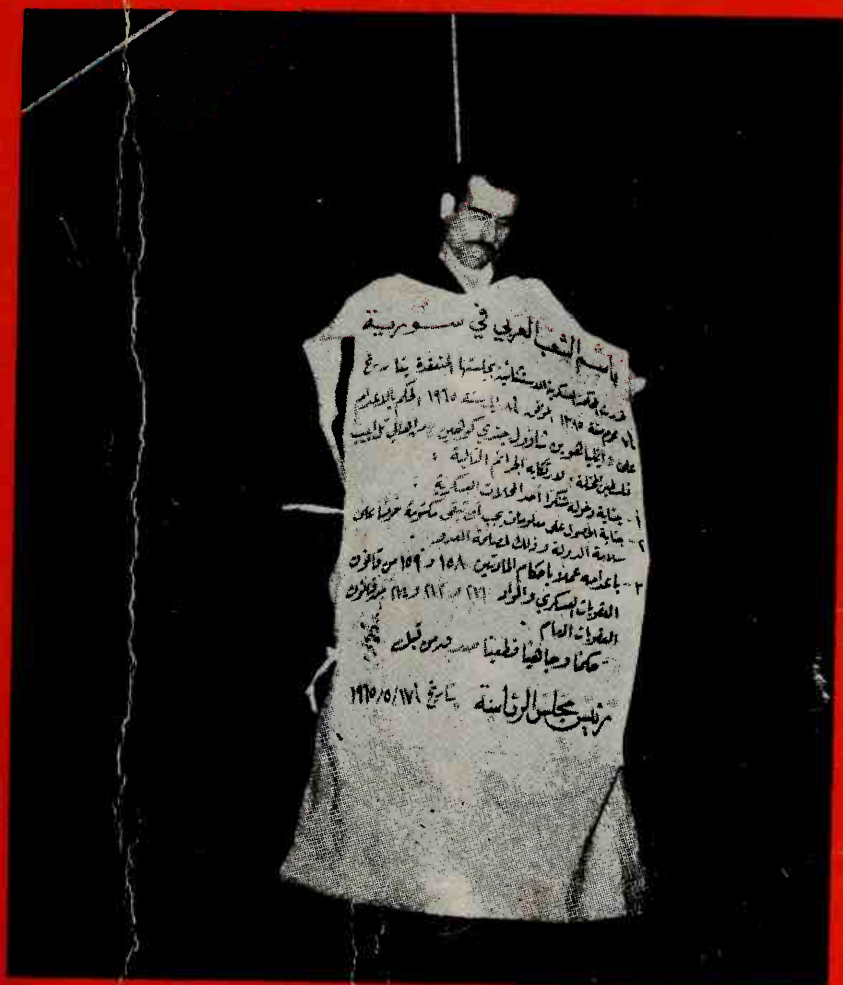 باسم الشعب العربي في سورية
المحكمة العسكرية الاستثنائية بجلستها المنعقدة بتاريخ
محرم سنة ١٣٨٥ سنة ١٩٦٥ الحكم بالاعدام
على شاؤول جندي كوهين من اهالي تل ابيب
فلسطين المحتلة لارتكابه الجرائم التالية :
١ - جناية دخوله متنكرا احد المحلات العسكرية .
٢ - جناية الحصول على معلومات يجب ان تبقى مكتومة حرصا على
سلامة الدولة وذلك لمصلحة العدو .
٣ - باعدامه عملا باحكام المادتين ١٥٨ و ١٥٩ من قانون
العقوبات العسكري والمواد و ٢٧٢ و من قانون
العقوبات العام .
حكما وجاهيا قطعيا من قبل
رئيس مجلس الرئاسة بتاريخ ١٩٦٥/٥/١٧